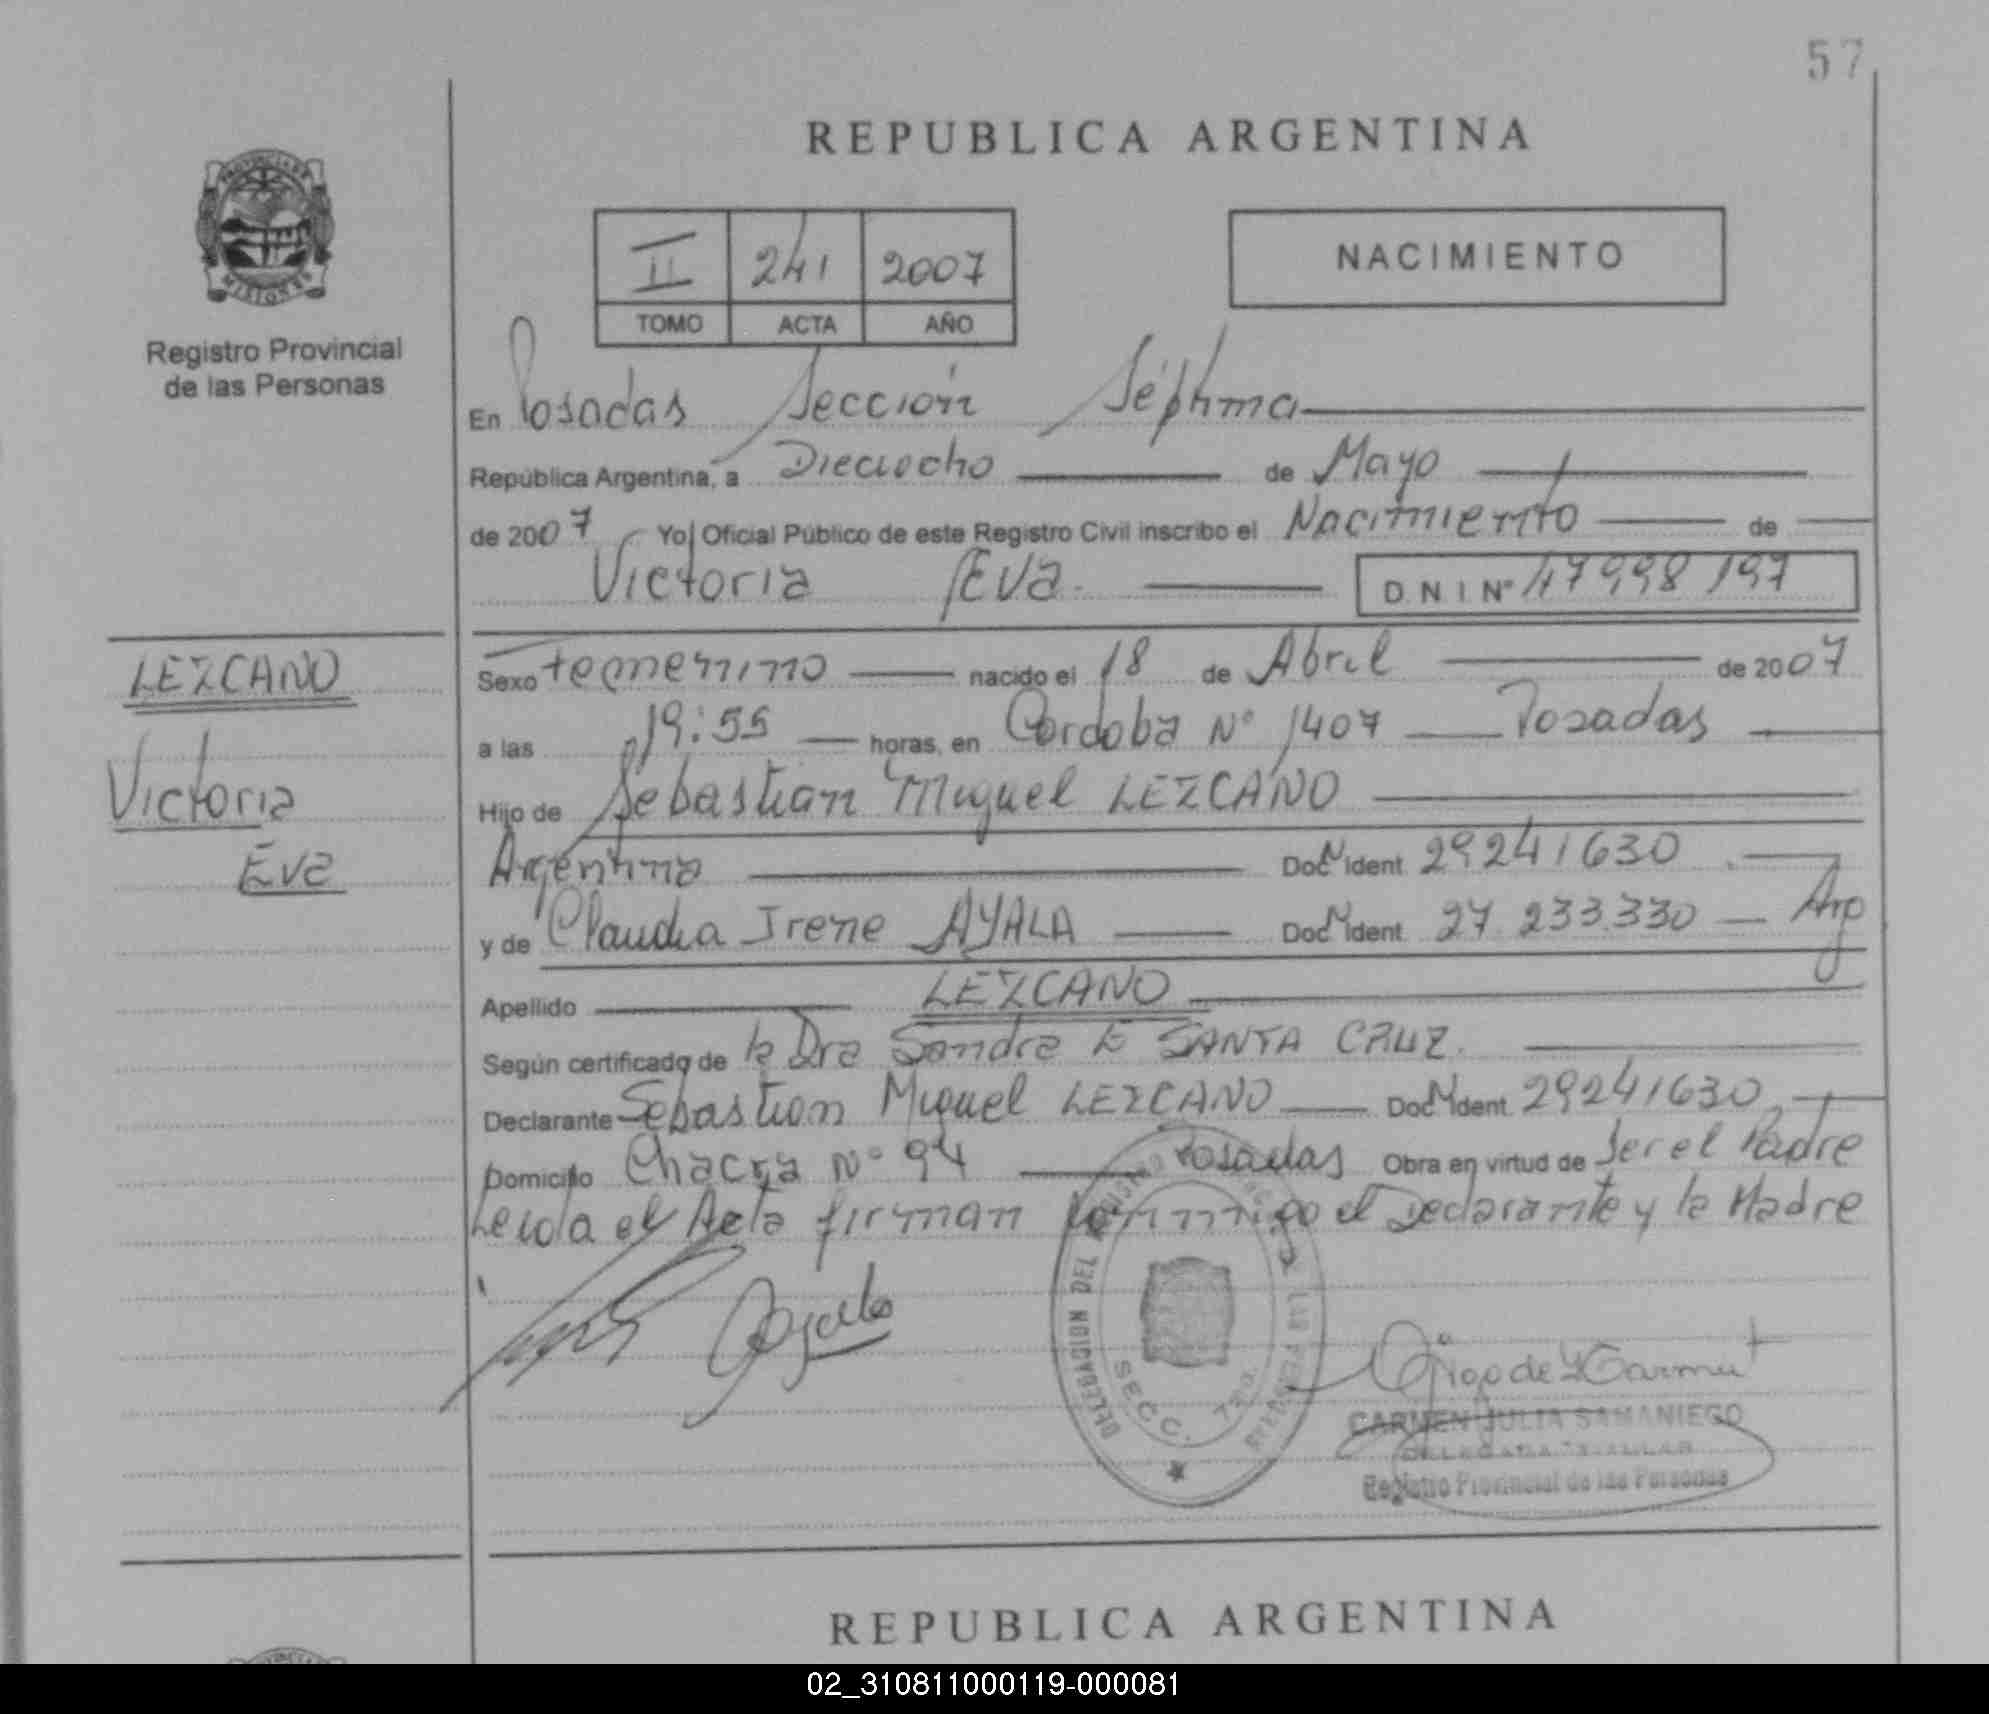 57
REPUBLICA ARGENTINA
PROVINCIA DE
MISIONES
Registro Provincial
de las Personas
II 241 2007
TOMO ACTA AÑO
NACIMIENTO
En Posadas Sección Séptima
República Argentina, a Dieciocho de Mayo
de 2007 Yo, Oficial Público de este Registro Civil inscribo el Nacimiento de
Victoria Eva. D.N.I Nº 47998197
LEZCANO
Victoria
Eva
Sexo femenino nacido el 18 de Abril de 2007
a las 19:55 horas, en Cordoba Nº 1407 Posadas
Hijo de Sebastian Miguel LEZCANO
Argentina Doc N Ident. 29241630
y de Claudia Irene AYALA Doc N Ident. 27.233.330 Arg
Apellido LEZCANO
Según certificado de la Dra Sandra E SANTA CRUZ.
Declarante Sebastian Miguel LEZCANO Doc N Ident. 29241630
Domicilio Chacra Nº 94 Posadas Obra en virtud de Ser el Padre
Leida el Acta firman conmigo el Declarante y la Madre
DELEGACION DEL REGISTRO PROVINCIAL DE LAS PERSONAS
SECC. 7ma.
CARMEN JULIA SAMANIEGO
DELEGADA TITULAR
Registro Provincial de las Personas
REPUBLICA ARGENTINA
02_310811000119-000081